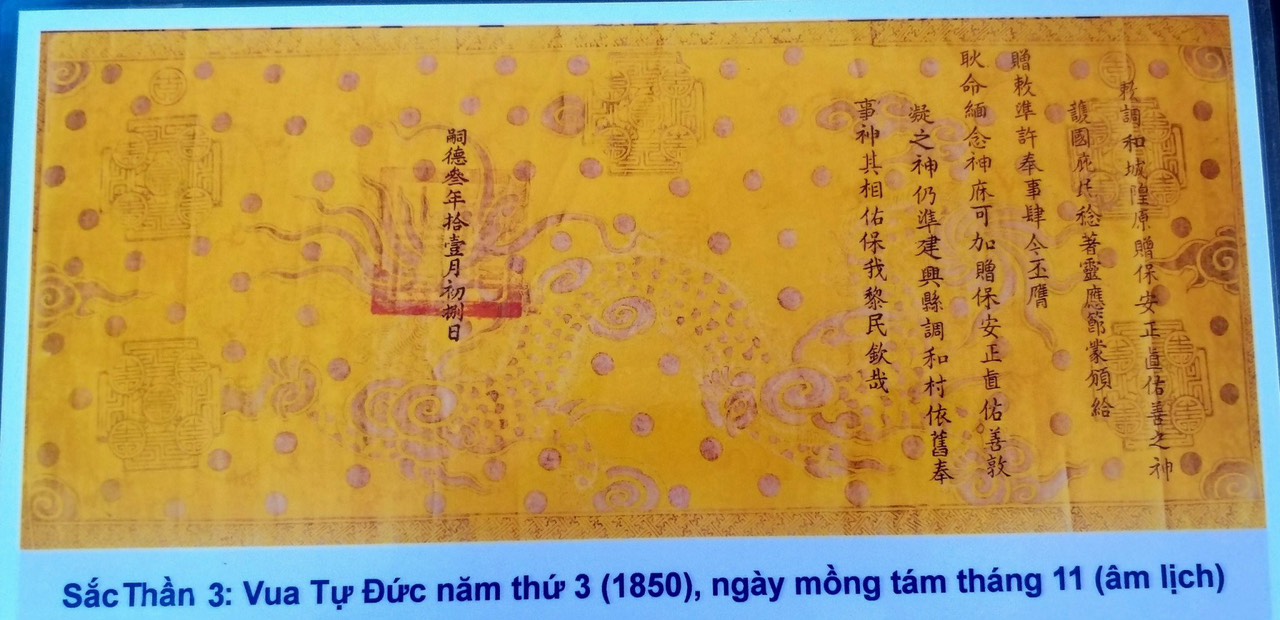 敕調和城隍原贈保安正直佑善之神
護國庇民稔著靈應節蒙頒給
贈敕準許奉事肆今丕膺
耿命緬念神庥可加贈保安正直佑善敦
凝之神仍準建興縣調和村依舊奉
事神其相佑保我黎民欽哉
嗣德叁年拾壹月初捌日
Sắc Thần 3: Vua Tự Đức năm thứ 3 (1850), ngày mồng tám tháng 11 (âm lịch)